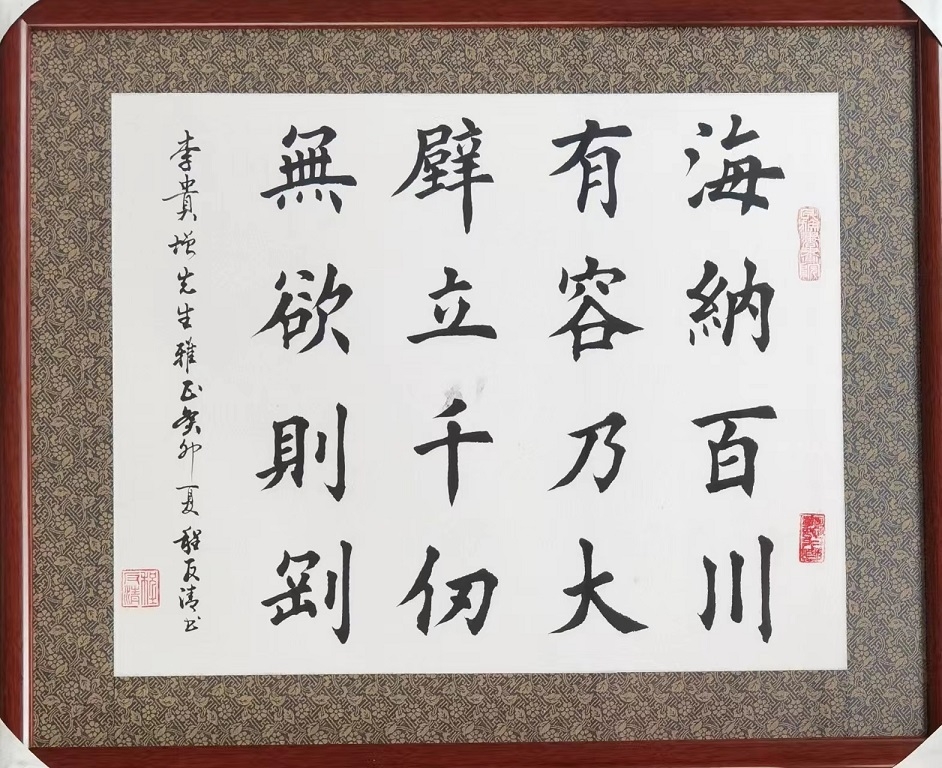 海納百川
有容乃大
壁立千仞
無欲則剛
李貴增先生雅正癸卯夏程友清书
程友清